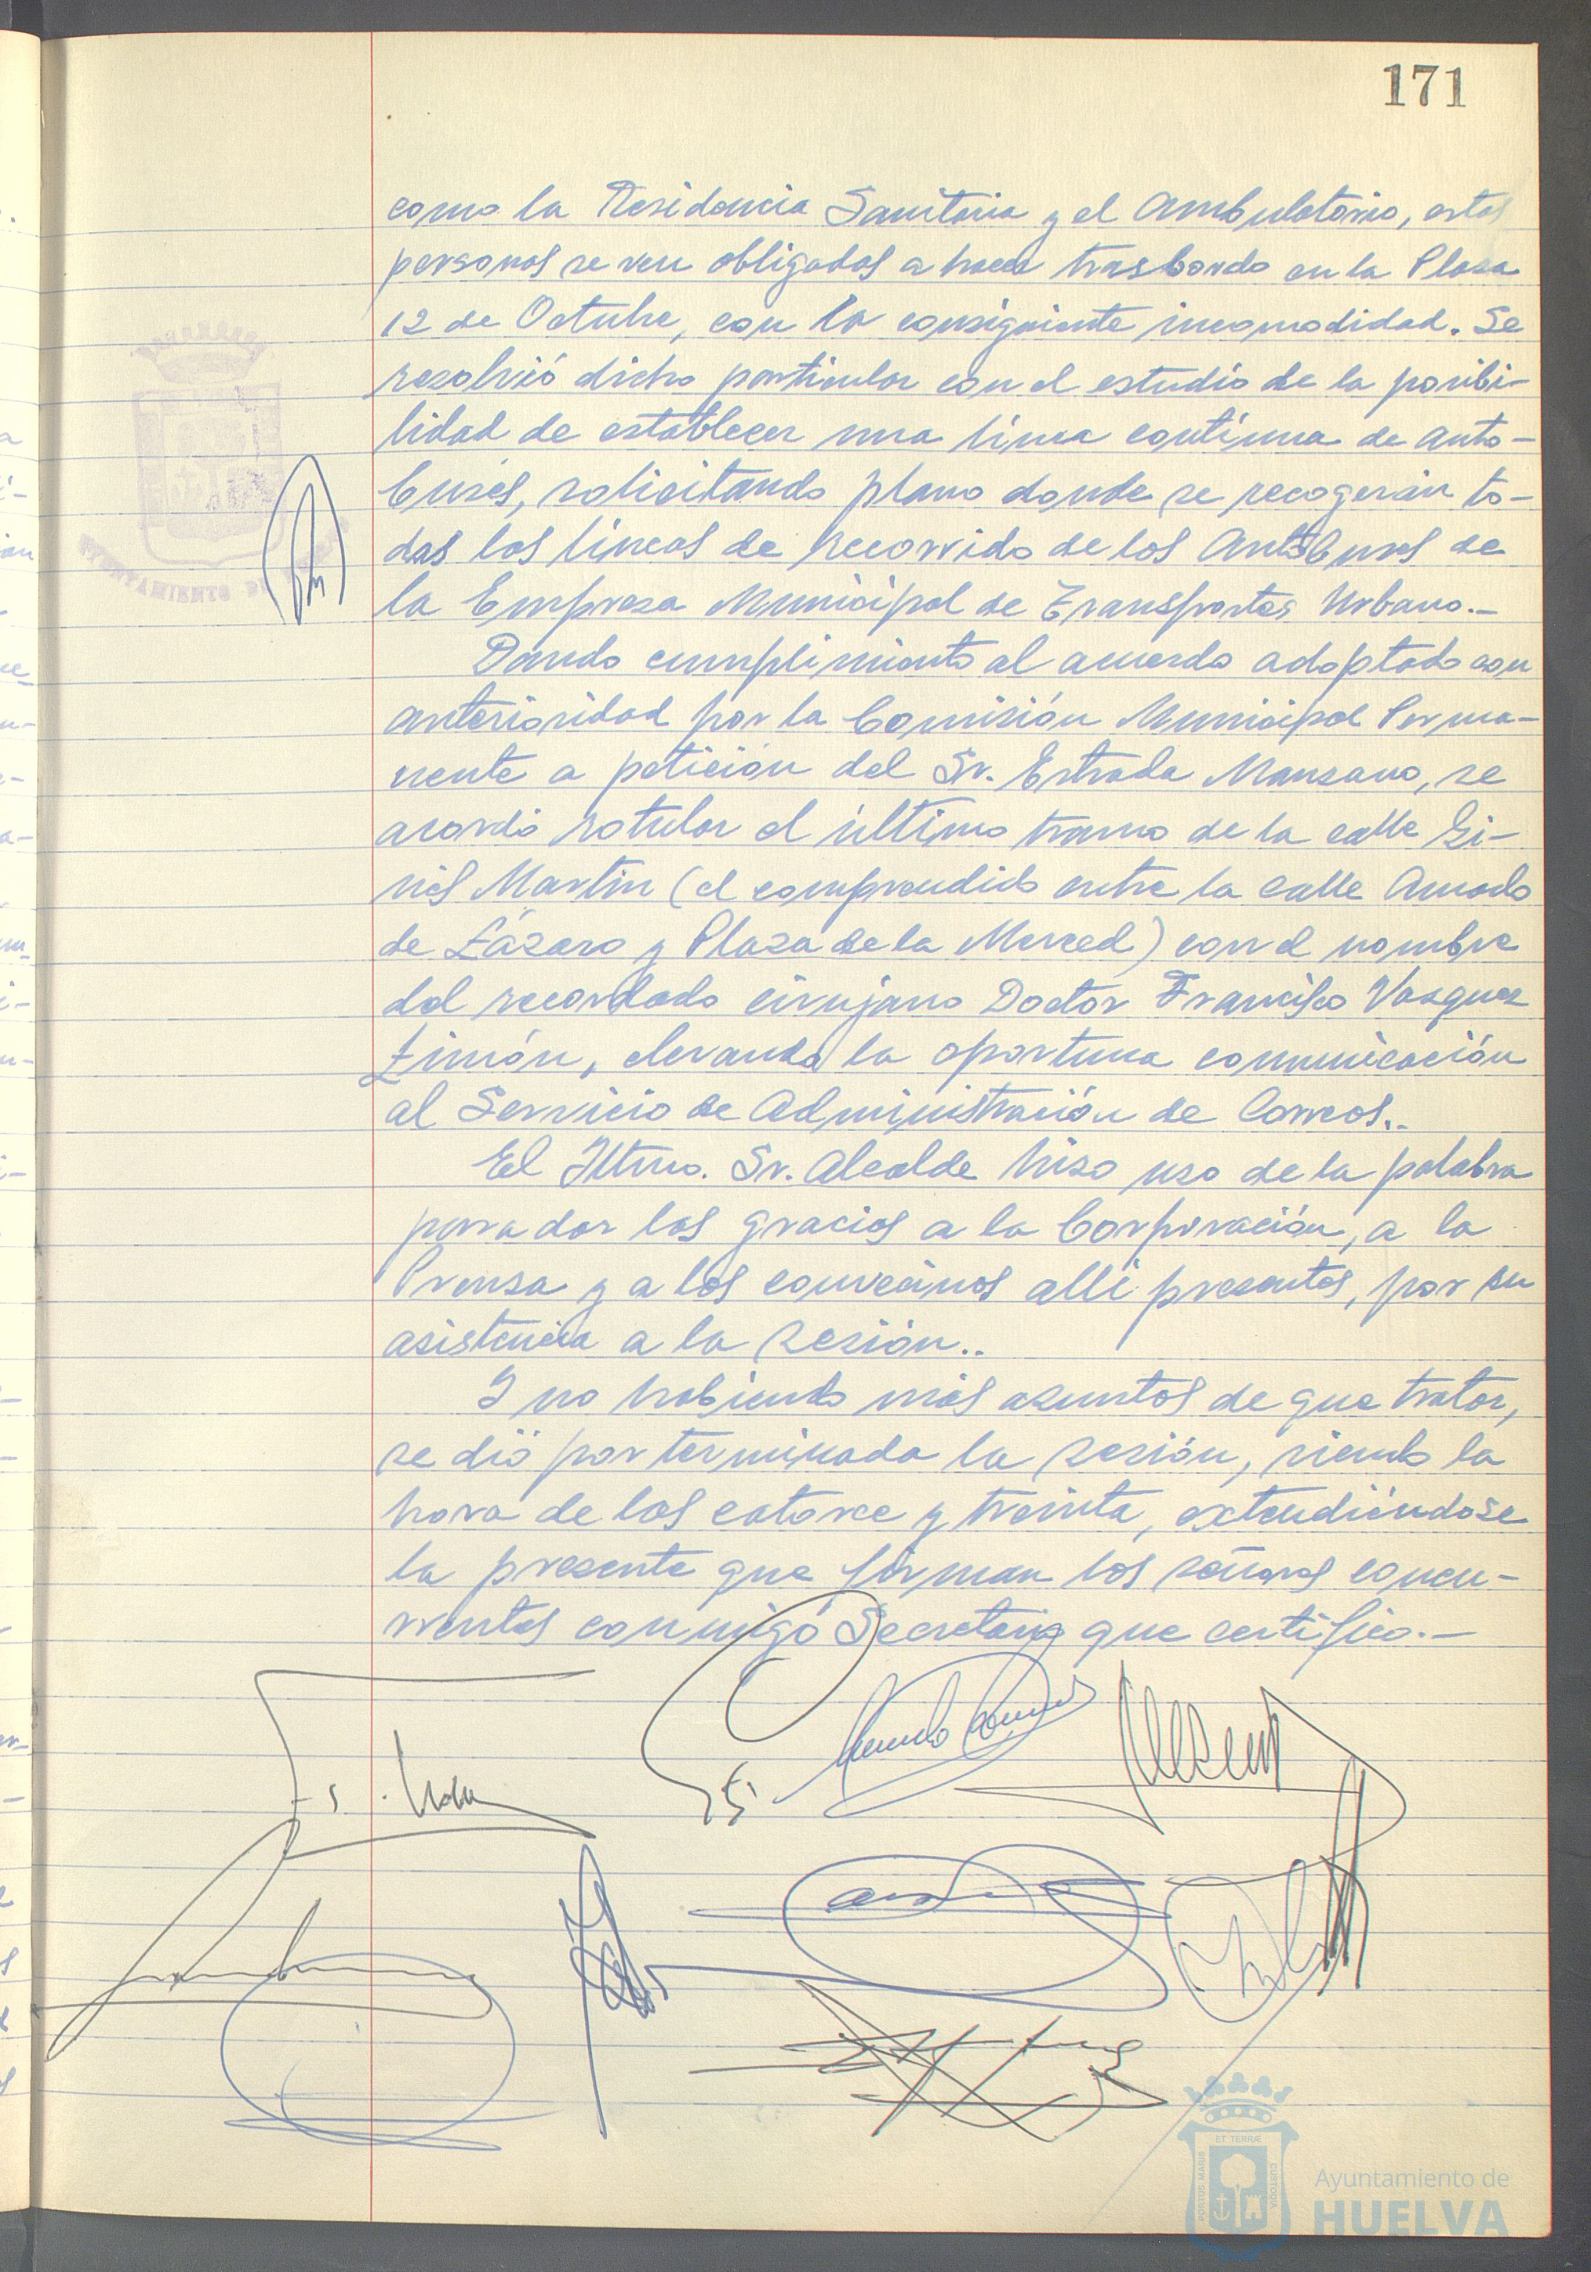 171
como la Residencia Sanitaria y el Ambulatorio, estas
personas se ven obligados a hacer trasbordo en la Plaza
12 de Octubre, con la consiguiente incomodidad. Se
resolvió dicho particular con el estudio de la posibi-
lidad de establecer una línea contínua de auto-
buses, solicitando plano donde se recogerán to-
das las líneas de recorrido de los Autobuses de
la Empresa Municipal de Transportes Urbano.-
Dando cumplimiento al acuerdo adoptado con
anterioridad por la Comisión Municipal Perma-
nente a petición del Sr. Estrada Manzano, se
acordó rotular el último tramo de la calle Gi-
nés Martín (el comprendido entre la calle Amado
de Lázaro y Plaza de la Merced) con el nombre
del recordado cirujano Doctor Francisco Vazquez
Limón, elevando la oportuna comunicación
al Servicio de Administración de Correos..
El Iltmo. Sr. Alcalde hizo uso de la palabra
para dar las gracias a la Corporación, a la
Prensa y a los convecinos allí presentes, por su
asistencia a la sesión..
Y no habiendo más asuntos de que tratar,
se dió por terminada la sesión, siendo la
hora de las catorce y treinta, extendiéndose
la presente que firman los señores concu-
rrentes conmigo Secretario que certifico.-
AYUNTAMIENTO DE HUELVA
PORTUS MARIS ET TERRÆ CUSTODIA
Ayuntamiento de
HUELVA